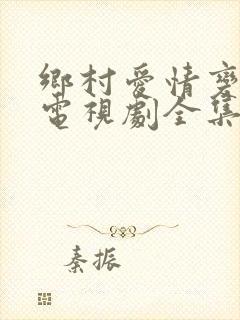 鄉村愛情變
電視劇全集
秦振